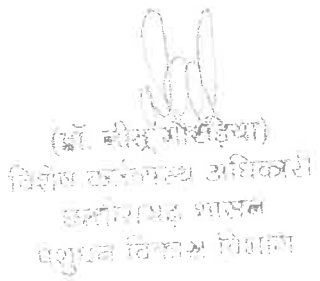 विशेष कर्त्तव्यस्थ अधिकारी
छत्तीसगढ़ शासन
पशुधन विकास विभाग